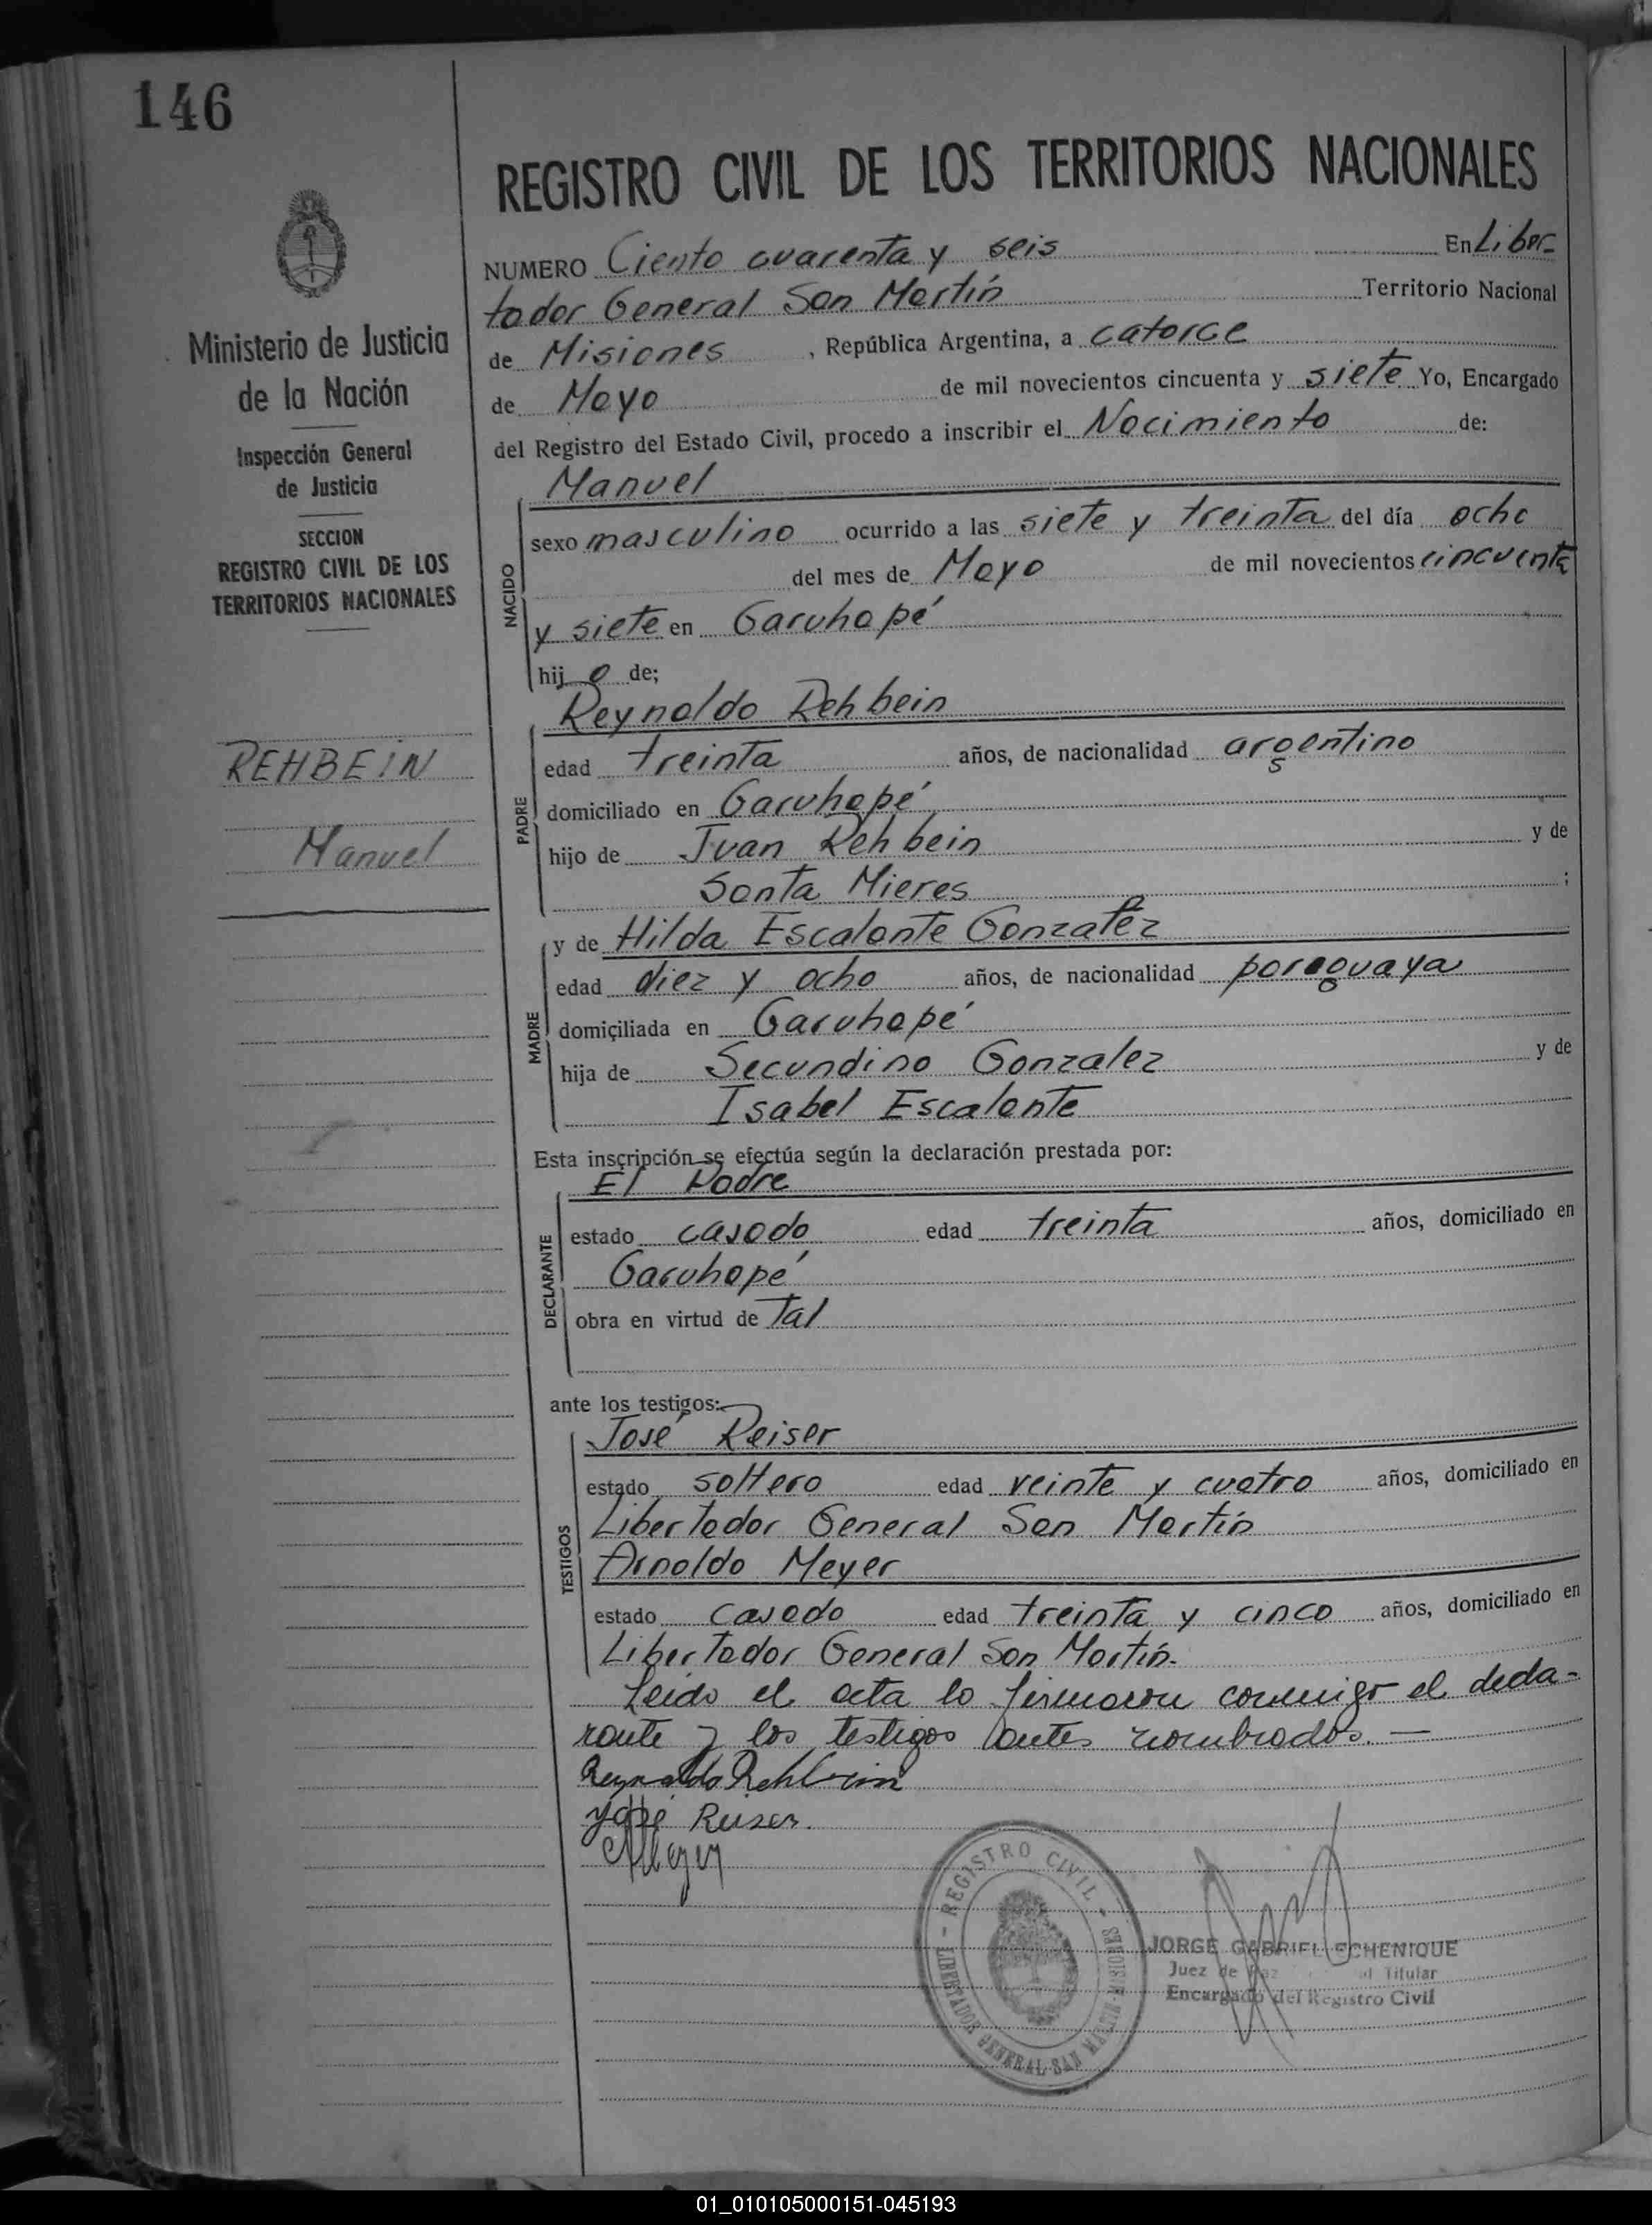 146
REGISTRO CIVIL DE LOS TERRITORIOS NACIONALES
Ministerio de Justicia
de la Nación
Inspección General
de Justicia
SECCION
REGISTRO CIVIL DE LOS
TERRITORIOS NACIONALES
REHBEIN
Manuel
NUMERO Ciento cuarenta y seis En Liber-
tador General San Martín Territorio Nacional
de Misiones , República Argentina, a catorce
de Mayo de mil novecientos cincuenta y siete Yo, Encargado
del Registro del Estado Civil, procedo a inscribir el Nacimiento de:
Manuel
NACIDO
sexo masculino ocurrido a las siete y treinta del día ocho
del mes de Mayo de mil novecientos cincuenta
y siete en Garuhapé
hij o de;
Reynaldo Rehbein
PADRE
edad treinta años, de nacionalidad argentino
domiciliado en Garuhapé
hijo de Juan Rehbein y de
Santa Mieres ;
MADRE
y de Hilda Escalante Gonzalez
edad diez y ocho años, de nacionalidad paraguaya
domiciliada en Garuhapé
hija de Secundino Gonzalez y de
Isabel Escalante
Esta inscripción se efectúa según la declaración prestada por:
El Padre
DECLARANTE
estado casado edad treinta años, domiciliado en
Garuhapé
obra en virtud de Tal
ante los testigos:
José Reiser
TESTIGOS
estado soltero edad veinte y cuatro años, domiciliado en
Libertador General San Martín
Arnoldo Meyer
estado casado edad treinta y cinco años, domiciliado en
Libertador General San Martín.
Leido el acta lo firmaron conmigo el decla-
rante y los testigos antes nombrados. —
Reynaldo Rehbein
José Reiser.
AMeyer
REGISTRO CIVIL - MISIONES
LIBERTADOR GENERAL SAN MARTIN
JORGE GABRIEL ECHENIQUE
Juez de Paz Titular
Encargado del Registro Civil
01_010105000151-045193